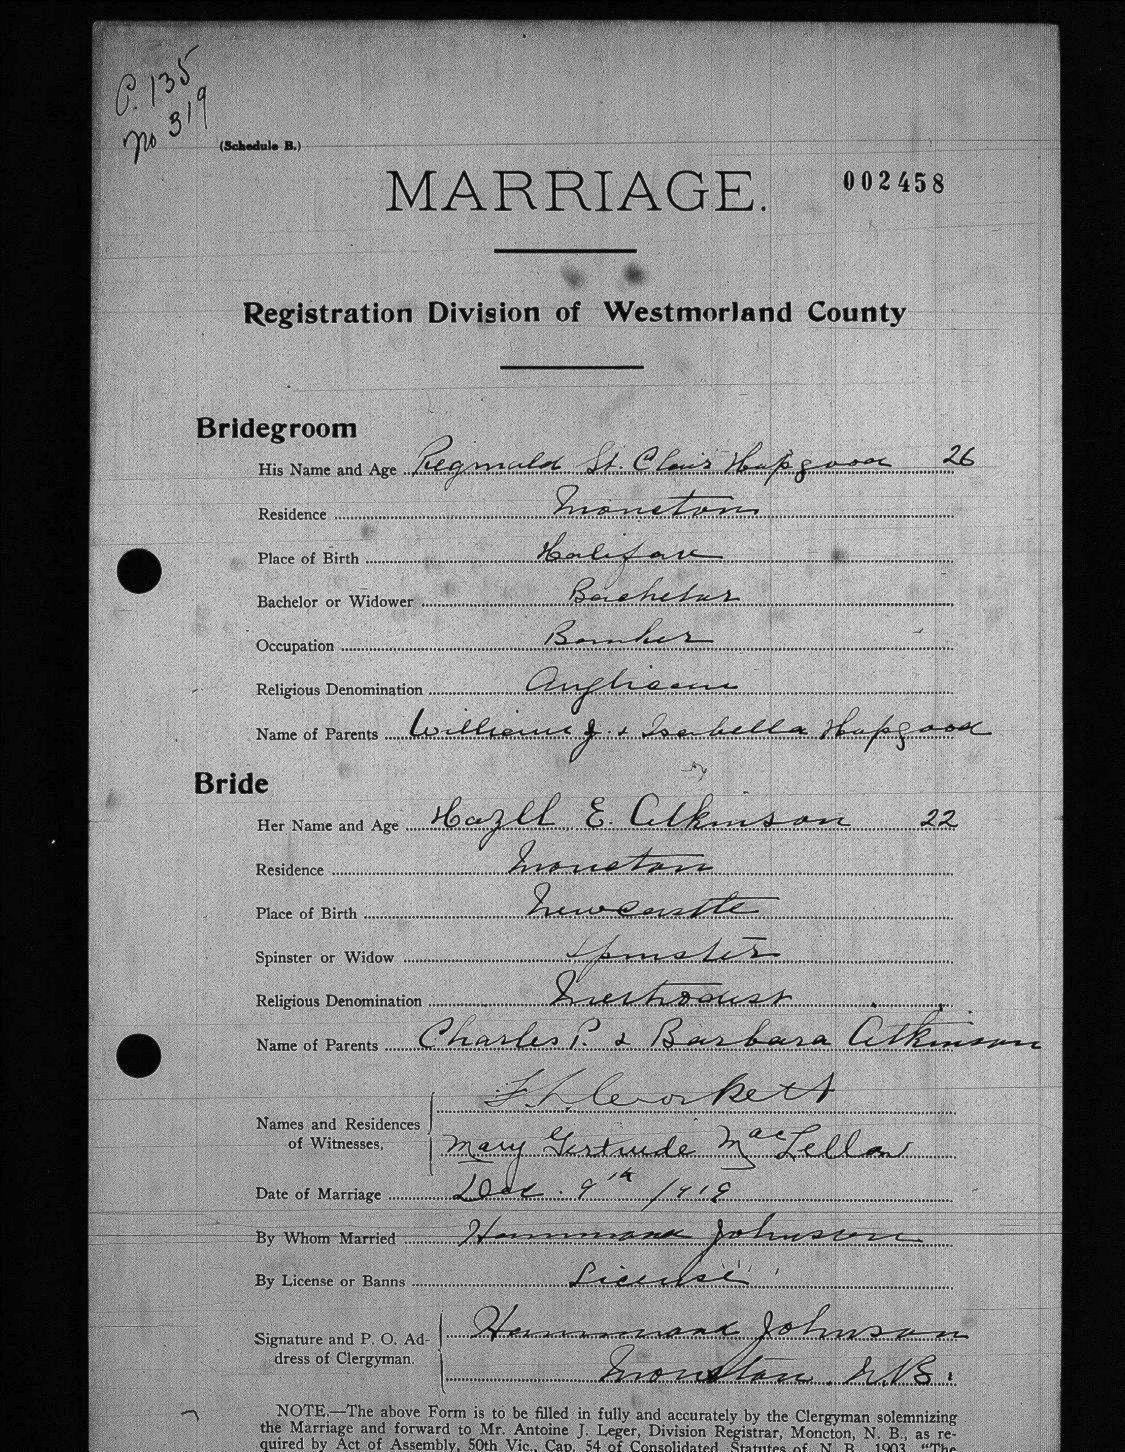 P. 135
No 319
(Schedule B.)
MARRIAGE.
002458
Registration Division of Westmorland County
Bridegroom
His Name and Age Reginald St. Clair Hapgood 26
Residence Moncton
Place of Birth Halifax
Bachelor or Widower Bachelor
Occupation Banker
Religious Denomination Anglican
Name of Parents William J. & Isabella Hapgood
Bride
Her Name and Age Hazel E. Atkinson 22
Residence Moncton
Place of Birth Newcastle
Spinster or Widow Spinster
Religious Denomination Methodist
Name of Parents Charles P. & Barbara Atkinson
Names and Residences
of Witnesses,
Mary Gertrude MacLellan
Date of Marriage Dec. 9th 1918
By Whom Married Hammond Johnson
By License or Banns License
Signature and P. O. Ad- Hammond Johnson
dress of Clergyman. Moncton. N.B.
NOTE.—The above Form is to be filled in fully and accurately by the Clergyman solemnizing
the Marriage and forward to Mr. Antoine J. Leger, Division Registrar, Moncton, N. B., as re-
quired by Act of Assembly, 50th Vic., Cap. 54 of Consolidated Statutes of N. B. 1903. "The